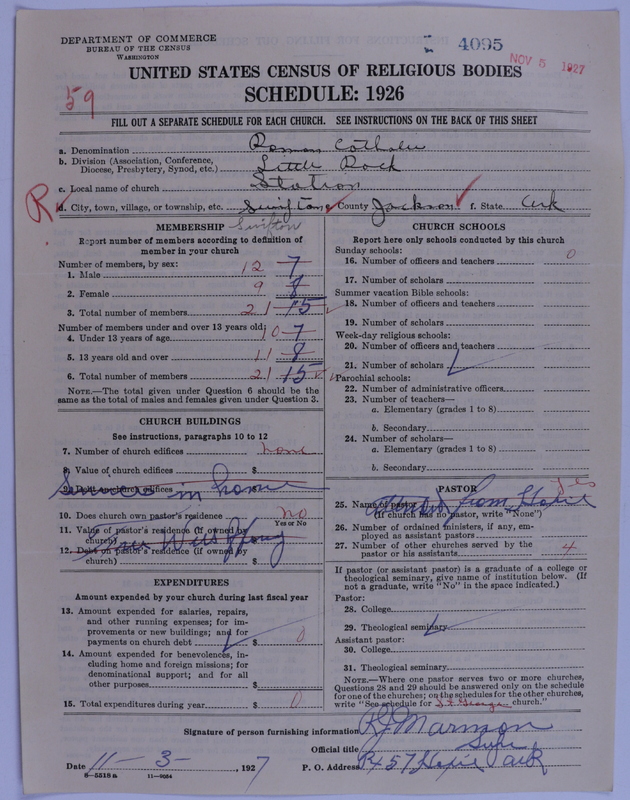 DEPARTMENT OF COMMERCE
BUREAU OF THE CENSUS
WASHINGTON
4095
NOV 5 1927
UNITED STATES CENSUS OF RELIGIOUS BODIES
SCHEDULE: 1926
59
FILL OUT A SEPARATE SCHEDULE FOR EACH CHURCH. SEE INSTRUCTIONS ON THE BACK OF THIS SHEET
a. Denomination Roman Catholic
b. Division (Association, Conference, Diocese, Presbytery, Synod, etc.) Little Rock
c. Local name of church Station
R d. City, town, village, or township, etc. Swifton County Jackson f. State Ark
Swifton
MEMBERSHIP
Report number of members according to definition of
member in your church
Number of members, by sex:
1. Male 12 7
2. Female 9 8
3. Total number of members 21 15
Number of members under and over 13 years old:
4. Under 13 years of age 10 7
5. 13 years old and over 11 8
6. Total number of members 21 15
NOTE.—The total given under Question 6 should be the
same as the total of males and females given under Question 3.
CHURCH BUILDINGS
See instructions, paragraphs 10 to 12
7. Number of church edifices none
8. Value of church edifices $
9. Debt on church edifices $
Services in home
10. Does church own pastor's residence No
Yes or No
11. Value of pastor's residence (if owned by
church) $
12. Debt on pastor's residence (if owned by
church) $
EXPENDITURES
Amount expended by your church during last fiscal year
13. Amount expended for salaries, repairs,
and other running expenses; for im-
provements or new buildings; and for
payments on church debt $ 0
14. Amount expended for benevolences, in-
cluding home and foreign missions; for
denominational support; and for all
other purposes $
15. Total expenditures during year $ 0
CHURCH SCHOOLS
Report here only schools conducted by this church
Sunday schools:
16. Number of officers and teachers 0
17. Number of scholars
Summer vacation Bible schools:
18. Number of officers and teachers
19. Number of scholars
Week-day religious schools:
20. Number of officers and teachers
21. Number of scholars
Parochial schools:
22. Number of administrative officers
23. Number of teachers—
a. Elementary (grades 1 to 8)
b. Secondary
24. Number of scholars—
a. Elementary (grades 1 to 8)
b. Secondary
PASTOR
yes
25. Name of pastor attended from Hoxie
(If church has no pastor, write "None")
26. Number of ordained ministers, if any, em-
ployed as assistant pastors
27. Number of other churches served by the
pastor or his assistants 4
If pastor (or assistant pastor) is a graduate of a college or
theological seminary, give name of institution below. (If
not a graduate, write "No" in the space indicated.)
Pastor:
28. College
29. Theological seminary
Assistant pastor:
30. College
31. Theological seminary
NOTE.—Where one pastor serves two or more churches,
Questions 28 and 29 should be answered only on the schedule
for one of the churches; on the schedules for the other churches,
write "See schedule for St George church."
Signature of person furnishing information R J Marmon
Official title Supt
Date 11-3-, 1927 P. O. Address R 457 Hoxie Ark
8-5518a 11-9054